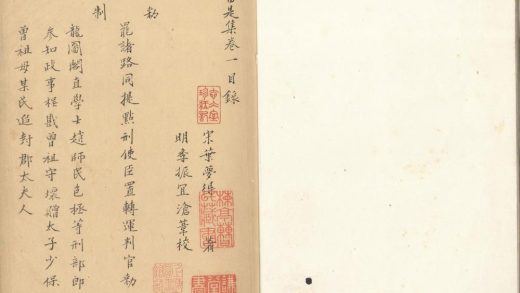 是集卷一目錄
宋葉夢得 著
明季振宜滄葦校
勑
罷諸路同提點刑使臣置轉運判官勑
制
龍圖閣直學士趙師民包拯等刑部郎
參知政事程戡曾祖守瓌贈太子少保
曾祖母某氏追封郡太夫人
楝亭曹氏藏書